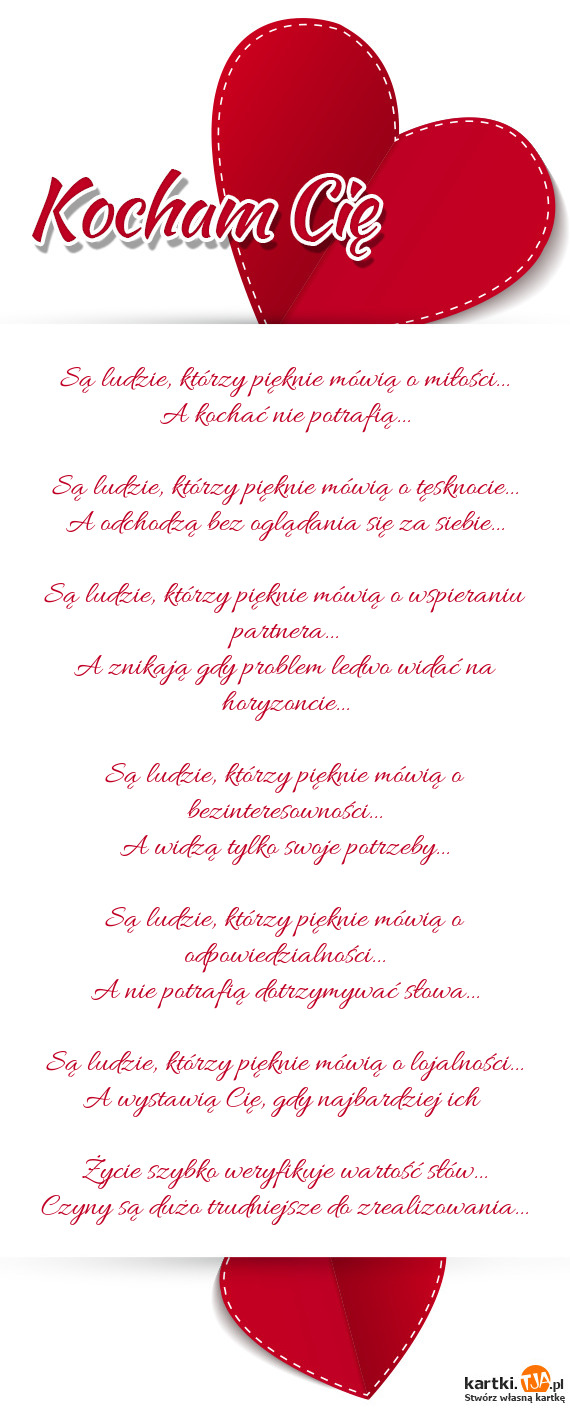 Kocham Cię
Są ludzie, którzy pięknie mówią o miłości...
A kochać nie potrafią...
Są ludzie, którzy pięknie mówią o tęsknocie...
A odchodzą bez oglądania się za siebie...
Są ludzie, którzy pięknie mówią o wspieraniu
partnera...
A znikają gdy problem ledwo widać na
horyzoncie...
Są ludzie, którzy pięknie mówią o
bezinteresowności...
A widzą tylko swoje potrzeby...
Są ludzie, którzy pięknie mówią o
odpowiedzialności...
A nie potrafią dotrzymywać słowa...
Są ludzie, którzy pięknie mówią o lojalności...
A wystawią Cię, gdy najbardziej ich
Życie szybko weryfikuje wartość słów...
Czyny są dużo trudniejsze do zrealizowania...
kartki.TJA.pl
Stwórz własną kartkę